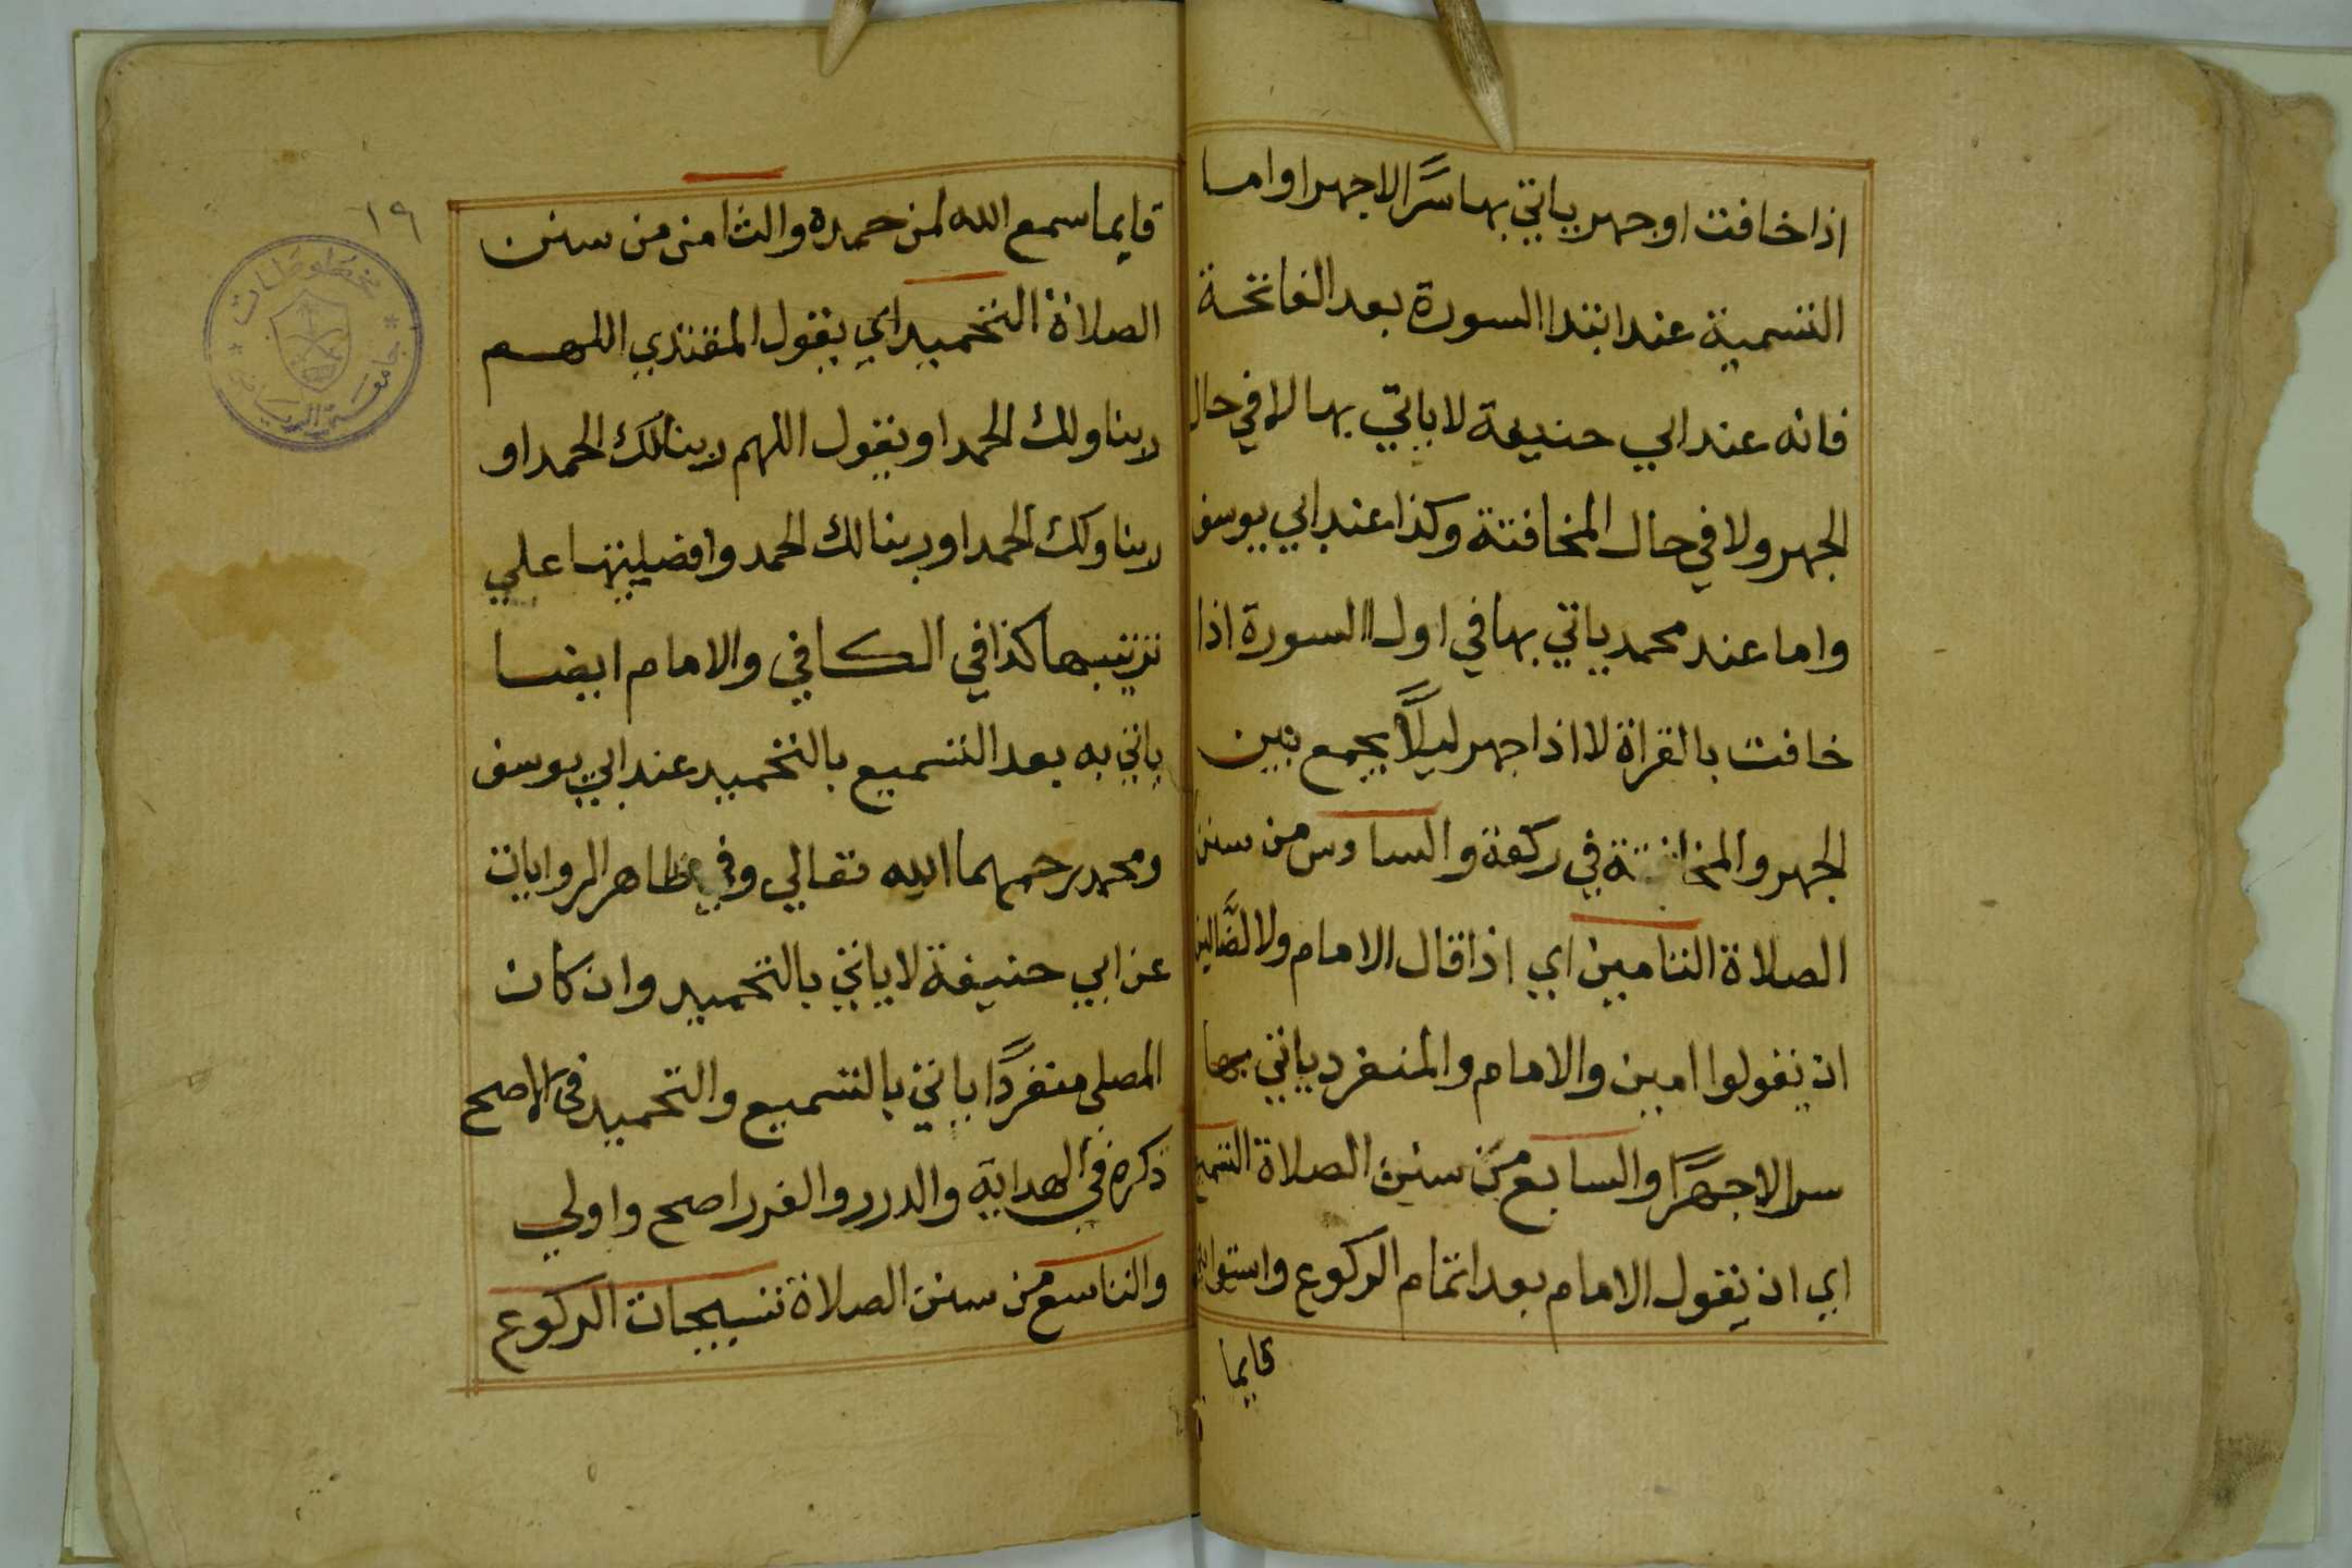 اذا خافت او جهر ياتي بها سرًّا لا جهرا واما
التسمية عند ابتدا السورة بعد الفاتحة
فانه عند ابي حنيفة لا ياتي بها لا في حال
الجهر ولا في حال المخافتة وكذا عند ابي يوسف
واما عند محمد ياتي بها في اول السورة اذا
خافت بالقراة لا اذا جهر ليلًا يجمع بين
الجهر والمخافتة في ركعة والسادس من سنن
الصلاة التامين اي اذا قال الامام ولا الضَّالين
ان يقولوا امين والامام والمنفرد ياتي بها
سرا لا جهرًا والسابع من سنن الصلاة التسميع
اي ان يقول الامام بعد اتمام الركوع واستوائه
قايما
١٩
قايما سمع الله لمن حمده والثامن من سنن
الصلاة التحميد اي يقول المقتدي اللهم
ربنا ولك الحمد او يقول اللهم ربنا لك الحمد او
ربنا ولك الحمد او ربنا لك الحمد وافضليتها علي
ترتيبها كذا في الكافي والامام ايضا
ياتي به بعد التسميع بالتحميد عند ابي يوسف
ومحمد رحمهما الله تعالي وفي ظاهر الروايات
عن ابي حنيفة لا ياتي بالتحميد وان كان
المصلي منفردًا ياتي بالتسميع والتحميد في الاصح
ذكره في الهداية والدرر والغرر اصح واولي
والتاسع من سنن الصلاة تسبيحات الركوع
مخطوطات
جامعة الرياض